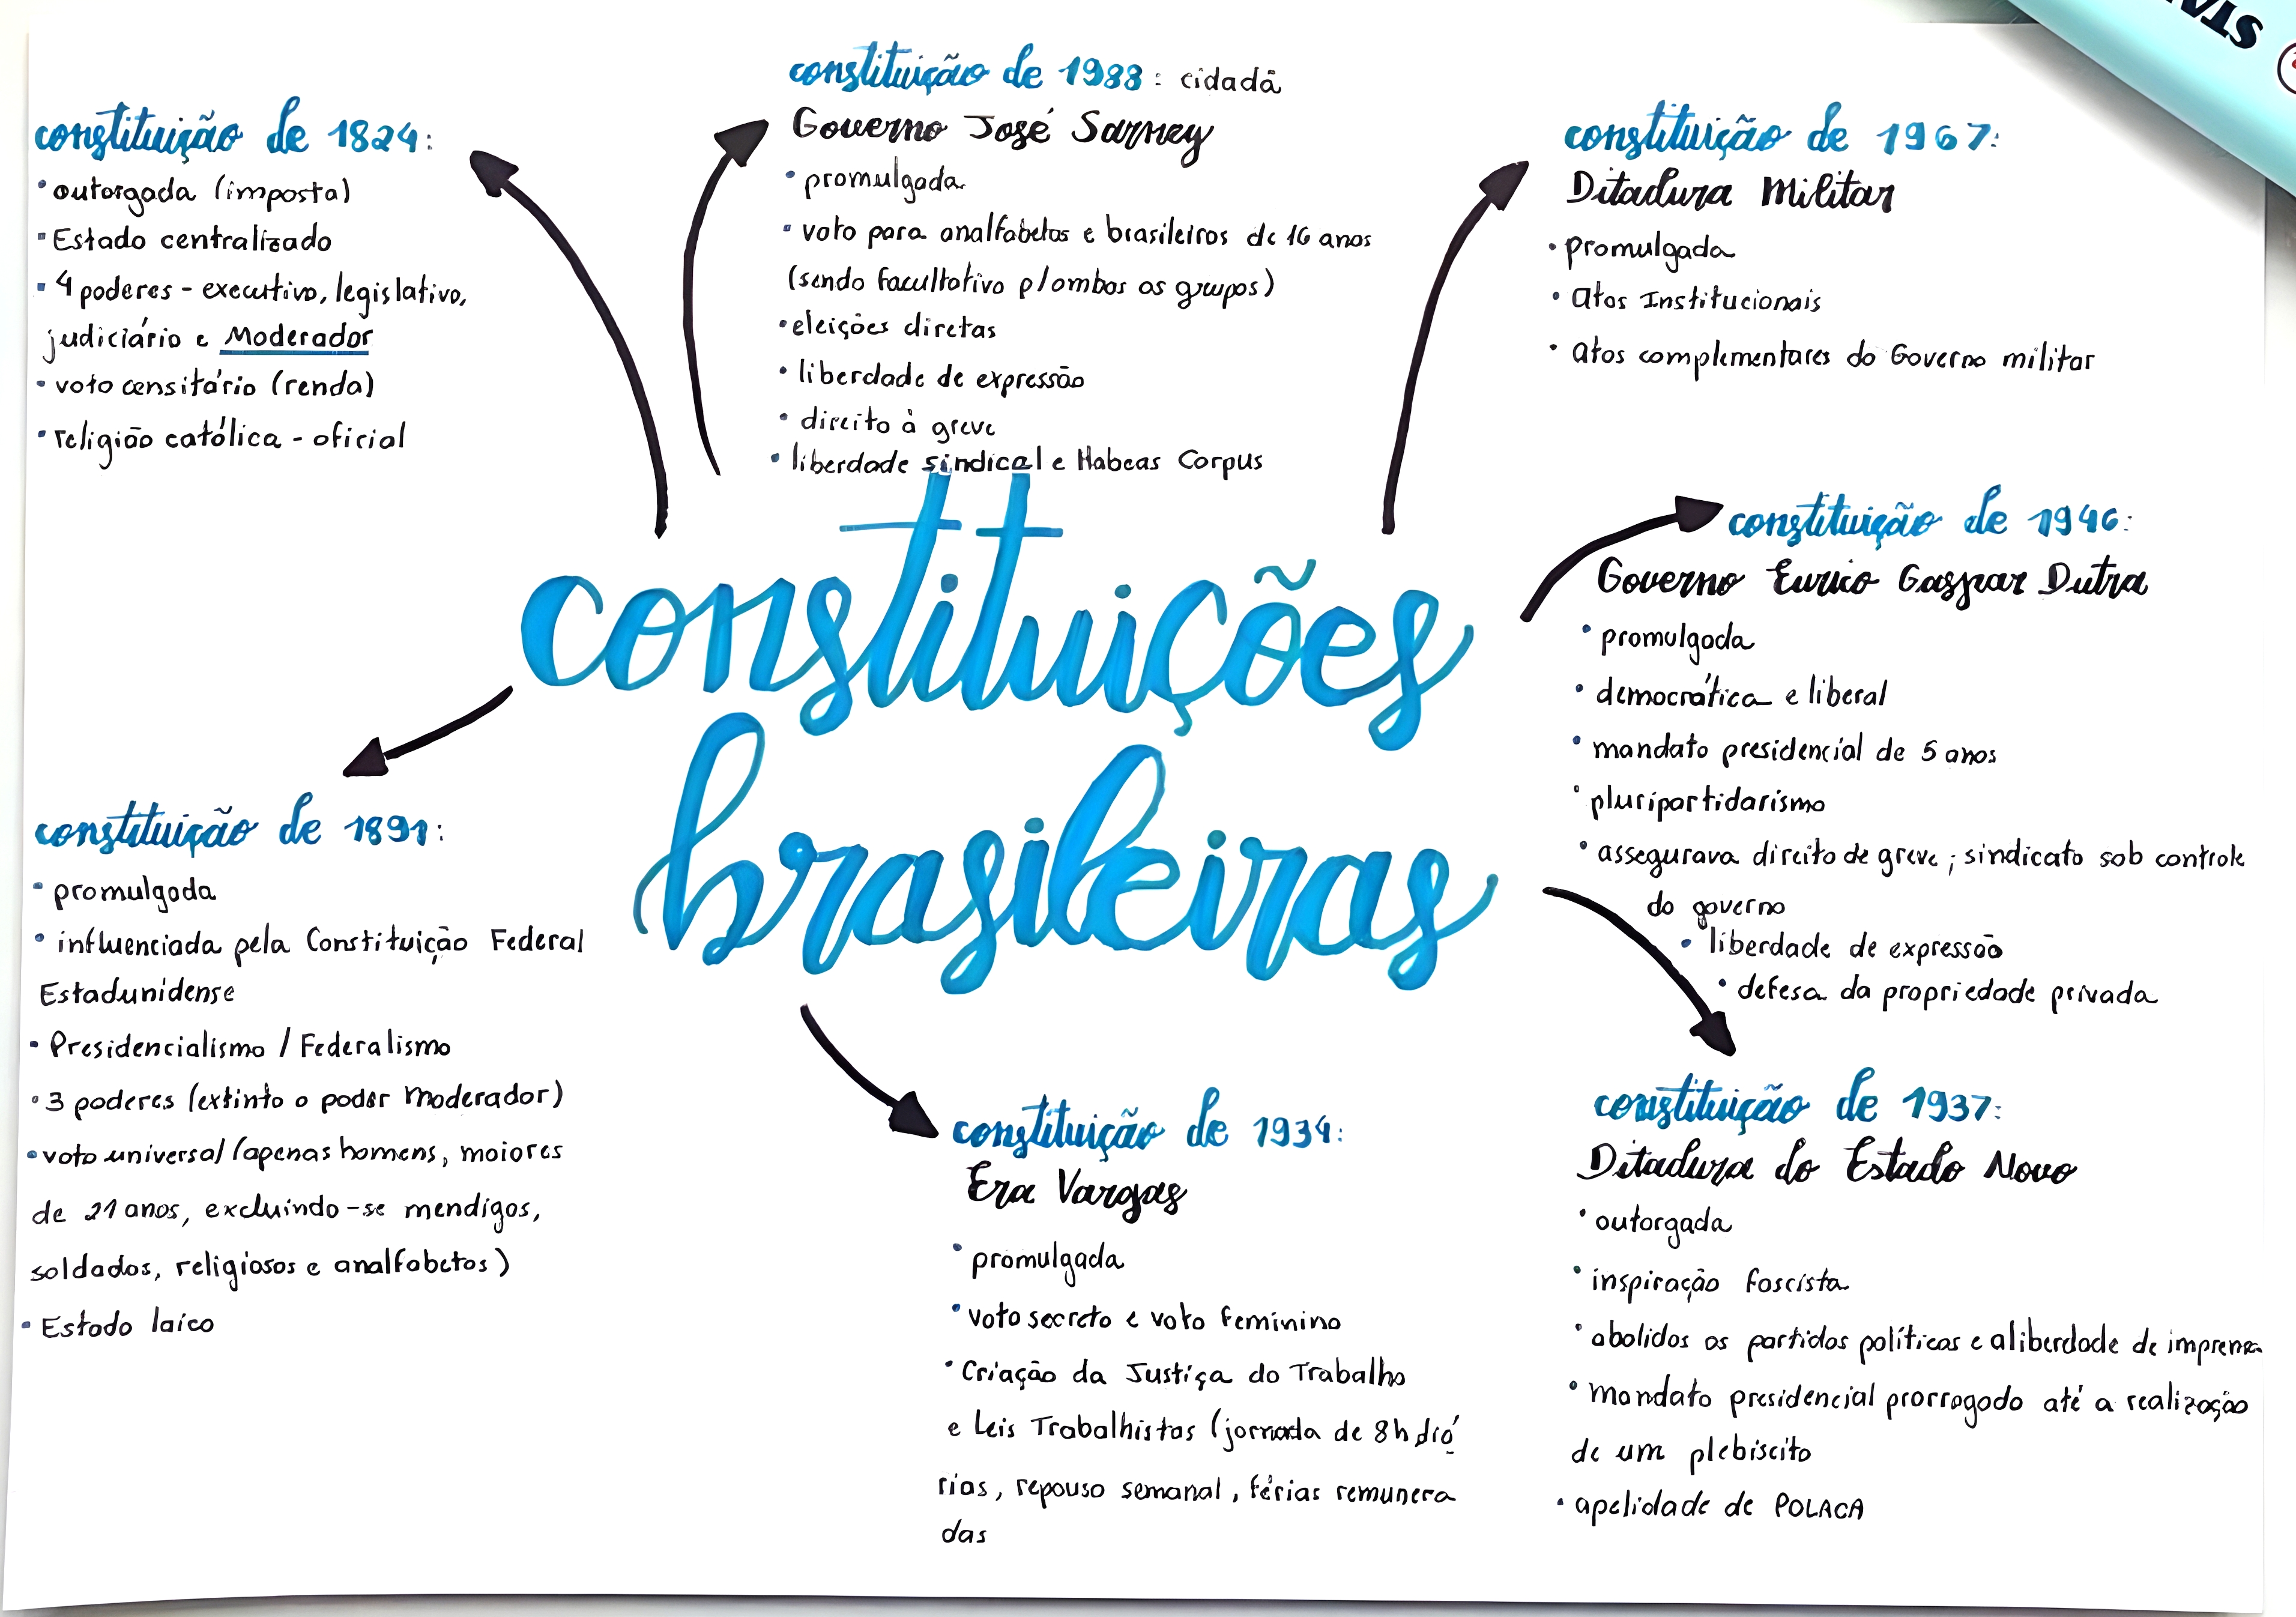 constituição de 1824:
• outorgada (imposta)
• Estado centralizado
• 4 poderes - executivo, legislativo,
judiciário e Moderador
• voto censitário (renda)
• religião católica - oficial
constituição de 1988: cidadã
Governo José Sarney
• promulgada
• voto para analfabetos e brasileiros de 16 anos
(sendo facultativo p/ ambos os grupos)
• eleições diretas
• liberdade de expressão
• direito à greve
• liberdade sindical e Habeas Corpus
constituição de 1967:
Ditadura Militar
• promulgada
• atos Institucionais
• atos complementares do Governo militar
constituições
brasileiras
constituição de 1946:
Governo Eurico Gaspar Dutra
• promulgada
• democrática e liberal
• mandato presidencial de 5 anos
• pluripartidarismo
• assegurava direito de greve; sindicato sob controle
do governo
• liberdade de expressão
• defesa da propriedade privada
constituição de 1891:
• promulgada
• influenciada pela Constituição Federal
Estadunidense
• Presidencialismo / Federalismo
• 3 poderes (extinto o poder Moderador)
• voto universal (apenas homens, maiores
de 21 anos, excluindo-se mendigos,
soldados, religiosos e analfabetos)
• Estado laico
constituição de 1934:
Era Vargas
• promulgada
• voto secreto e voto feminino
• Criação da Justiça do Trabalho
e Leis Trabalhistas (jornada de 8h diá
rias, repouso semanal, férias remunera
das
constituição de 1937:
Ditadura do Estado Novo
• outorgada
• inspiração fascista
• abolidos os partidos políticos e a liberdade de imprensa
• mandato presidencial prorrogado até a realização
de um plebiscito
• apelidade de POLACA